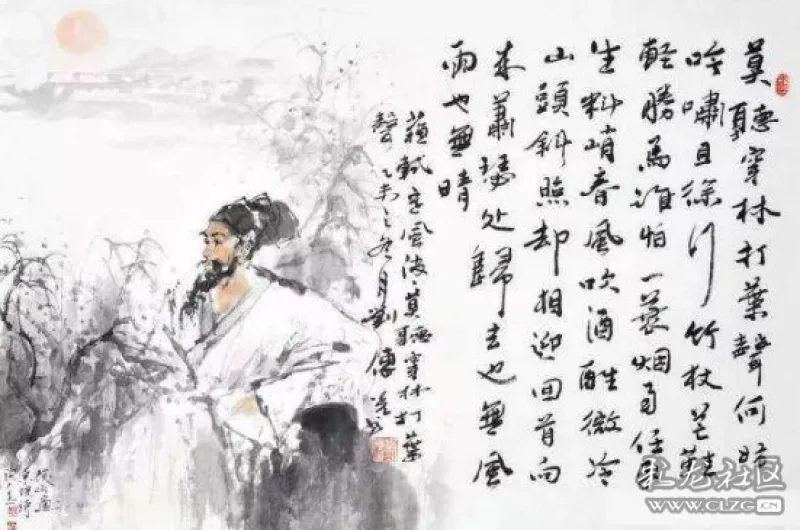 莫聽穿林打葉聲何妨
吟嘯且徐行竹杖芒鞋
輕勝馬誰怕一蓑烟雨任平
生料峭春風吹酒醒微冷
山頭斜照却相迎回首向
来蕭瑟处歸去也無風
雨也無晴
蘇軾定風波莫聽穿林打葉
聲乙未之冬月劉傅
彩龙社区
WWW.CLZG.CN